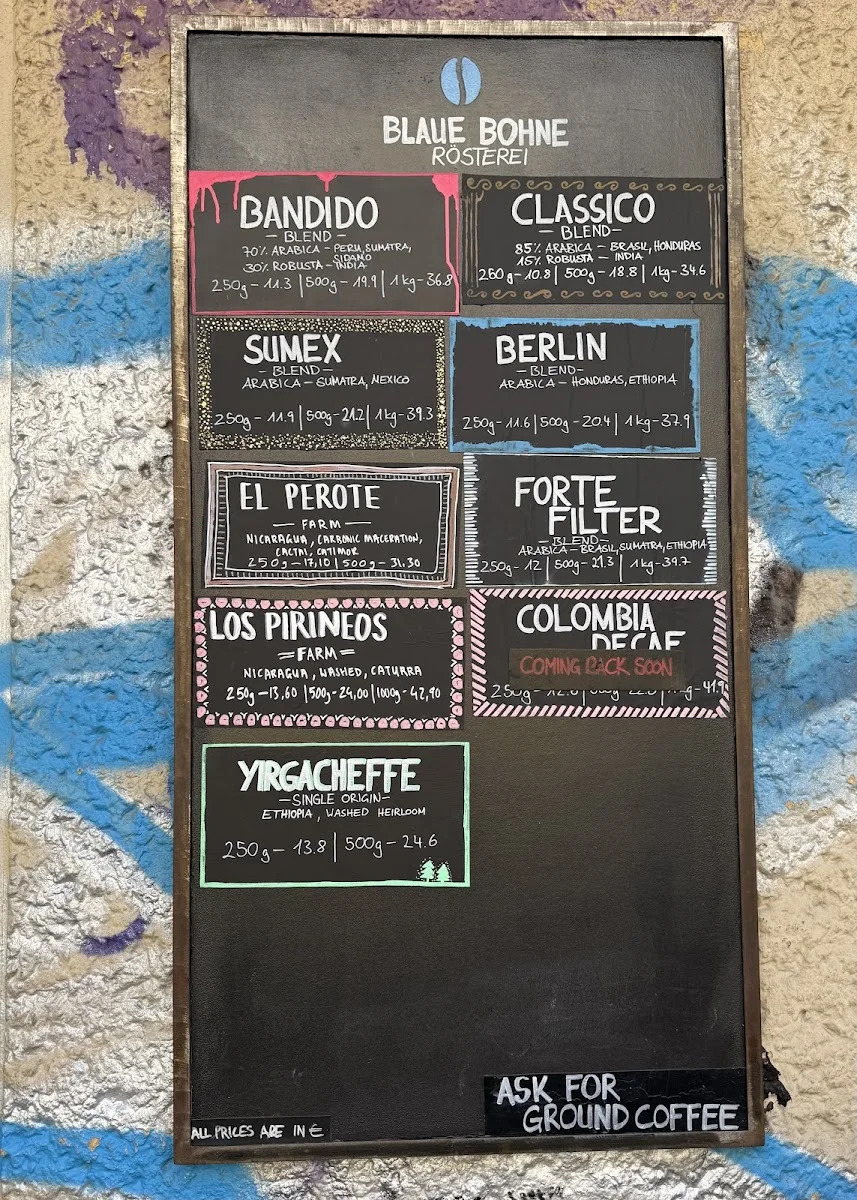 BLAUE BOHNE
RÖSTEREI
BANDIDO
— BLEND —
70% ARABICA – PERU, SUMATRA,
SIDAMO
30% ROBUSTA – INDIA
250g – 11.3 | 500g – 19.9 | 1kg – 36.8
CLASSICO
— BLEND —
85% ARABICA – BRASIL, HONDURAS
15% ROBUSTA – INDIA
250g – 10.8 | 500g – 18.8 | 1kg – 34.6
SUMEX
— BLEND —
ARABICA – SUMATRA, MEXICO
250g – 11.9 | 500g – 21.2 | 1kg – 39.3
BERLIN
— BLEND —
ARABICA – HONDURAS, ETHIOPIA
250g – 11.6 | 500g – 20.4 | 1kg – 37.9
EL PEROTE
— FARM —
NICARAGUA, CARBONIC MACERATION,
CATIMOR
250g – 17,10 | 500g – 31,30
FORTE
FILTER
— BLEND —
ARABICA – BRASIL, SUMATRA, ETHIOPIA
250g – 12 | 500g – 21.3 | 1kg – 39.7
LOS PIRINEOS
= FARM =
NICARAGUA, WASHED, CATUARA
250g – 13,60 | 500g – 24,00 | 1000g – 42,90
COLOMBIA
DECAF
COMING BACK SOON
250g 41.9
YIRGACHEFFE
— SINGLE ORIGIN —
ETHIOPIA, WASHED HEIRLOOM
250g – 13.8 | 500g – 24.6
ASK FOR
GROUND COFFEE
ALL PRICES ARE IN €